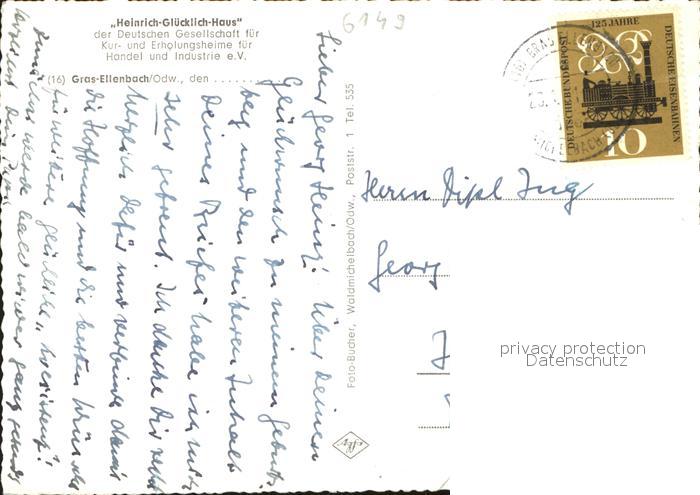 „Heinrich-Glücklich-Haus"
der Deutschen Gesellschaft für
Kur- und Erholungsheime für
Handel und Industrie e.V.
(16) Gras-Ellenbach/Odw., den
6149
Lieber Georg Heinz! Über Deinen
Glückwunsch zu meinem Geburts
tag und den weiteren Inhalt
Deines Briefes habe ich mich
sehr gefreut. Ich danke Dir sehr
herzlich dafür und verbinde damit
die Hoffnung und die besten Wünsche
für weitere glückliche
Zunächst werde bald wieder ganz gesund
Foto-Bucher, Waldmichelbach/Odw., Poststr. 1 Tel. 535
125 JAHRE
DEUTSCHE EISENBAHNEN
DEUTSCHE BUNDESPOST
10
Herrn Dipl Ing
Georg
privacy protection
Datenschutz